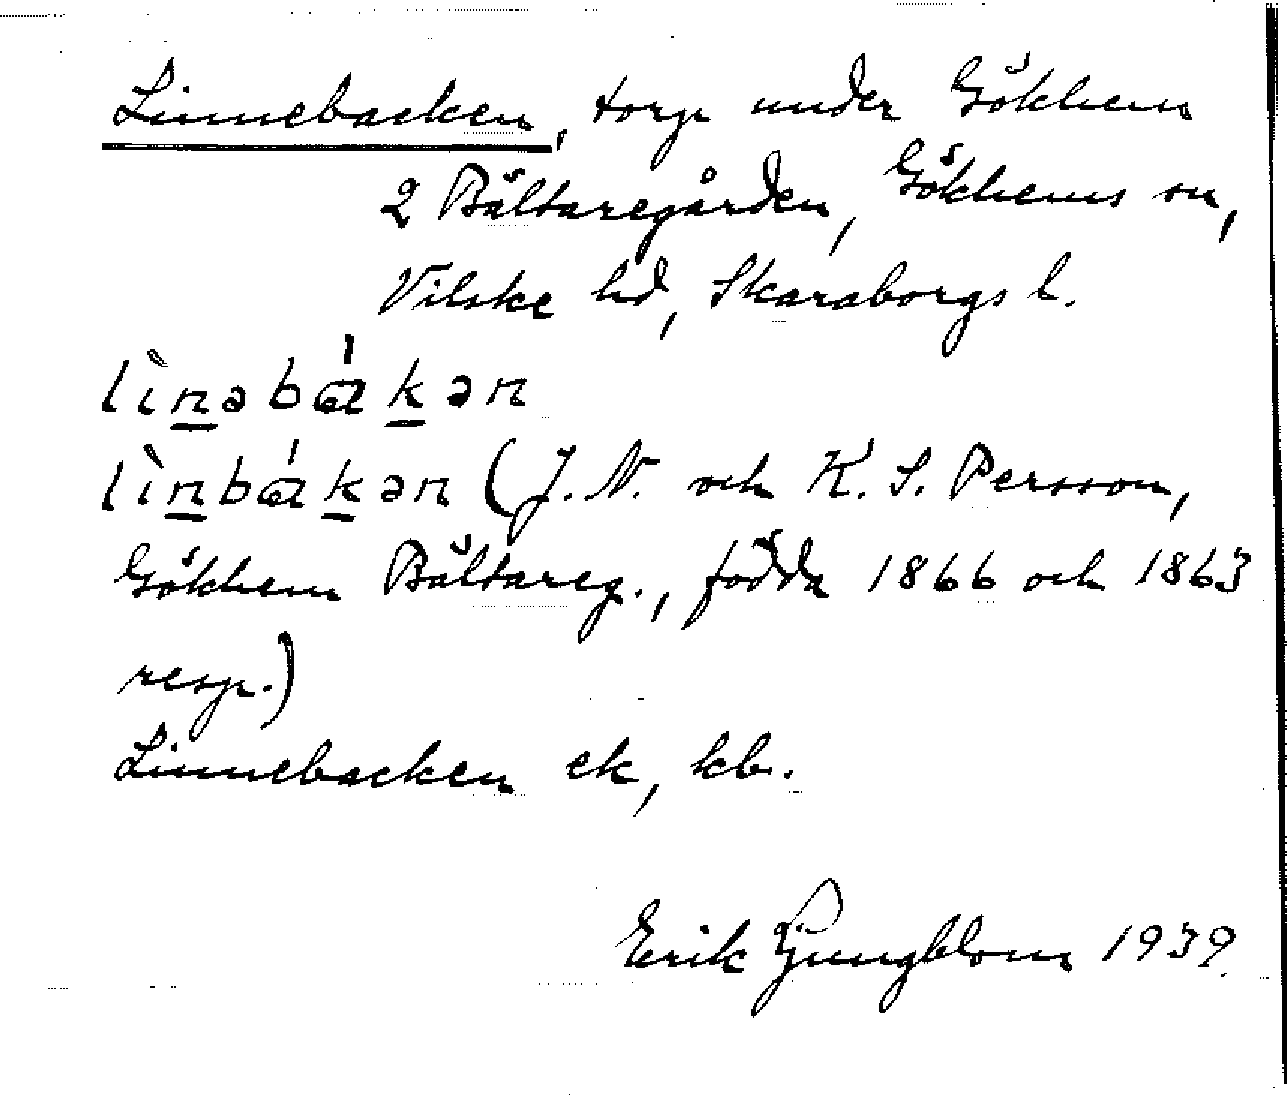 Linnebacken, torp under Gökhem
2 Bältaregården, Gökhems sn,
Vilske hd, Skaraborgs l.
lìn̲əbá̍k̲ən
lìn̲bɑ́k̲ən (J. N. och K. S. Persson,
Gökhem Bältareg., födda 1866 och 1863
resp.)
Linnebacken ek, kb.
Erik Ljungblom 1939.